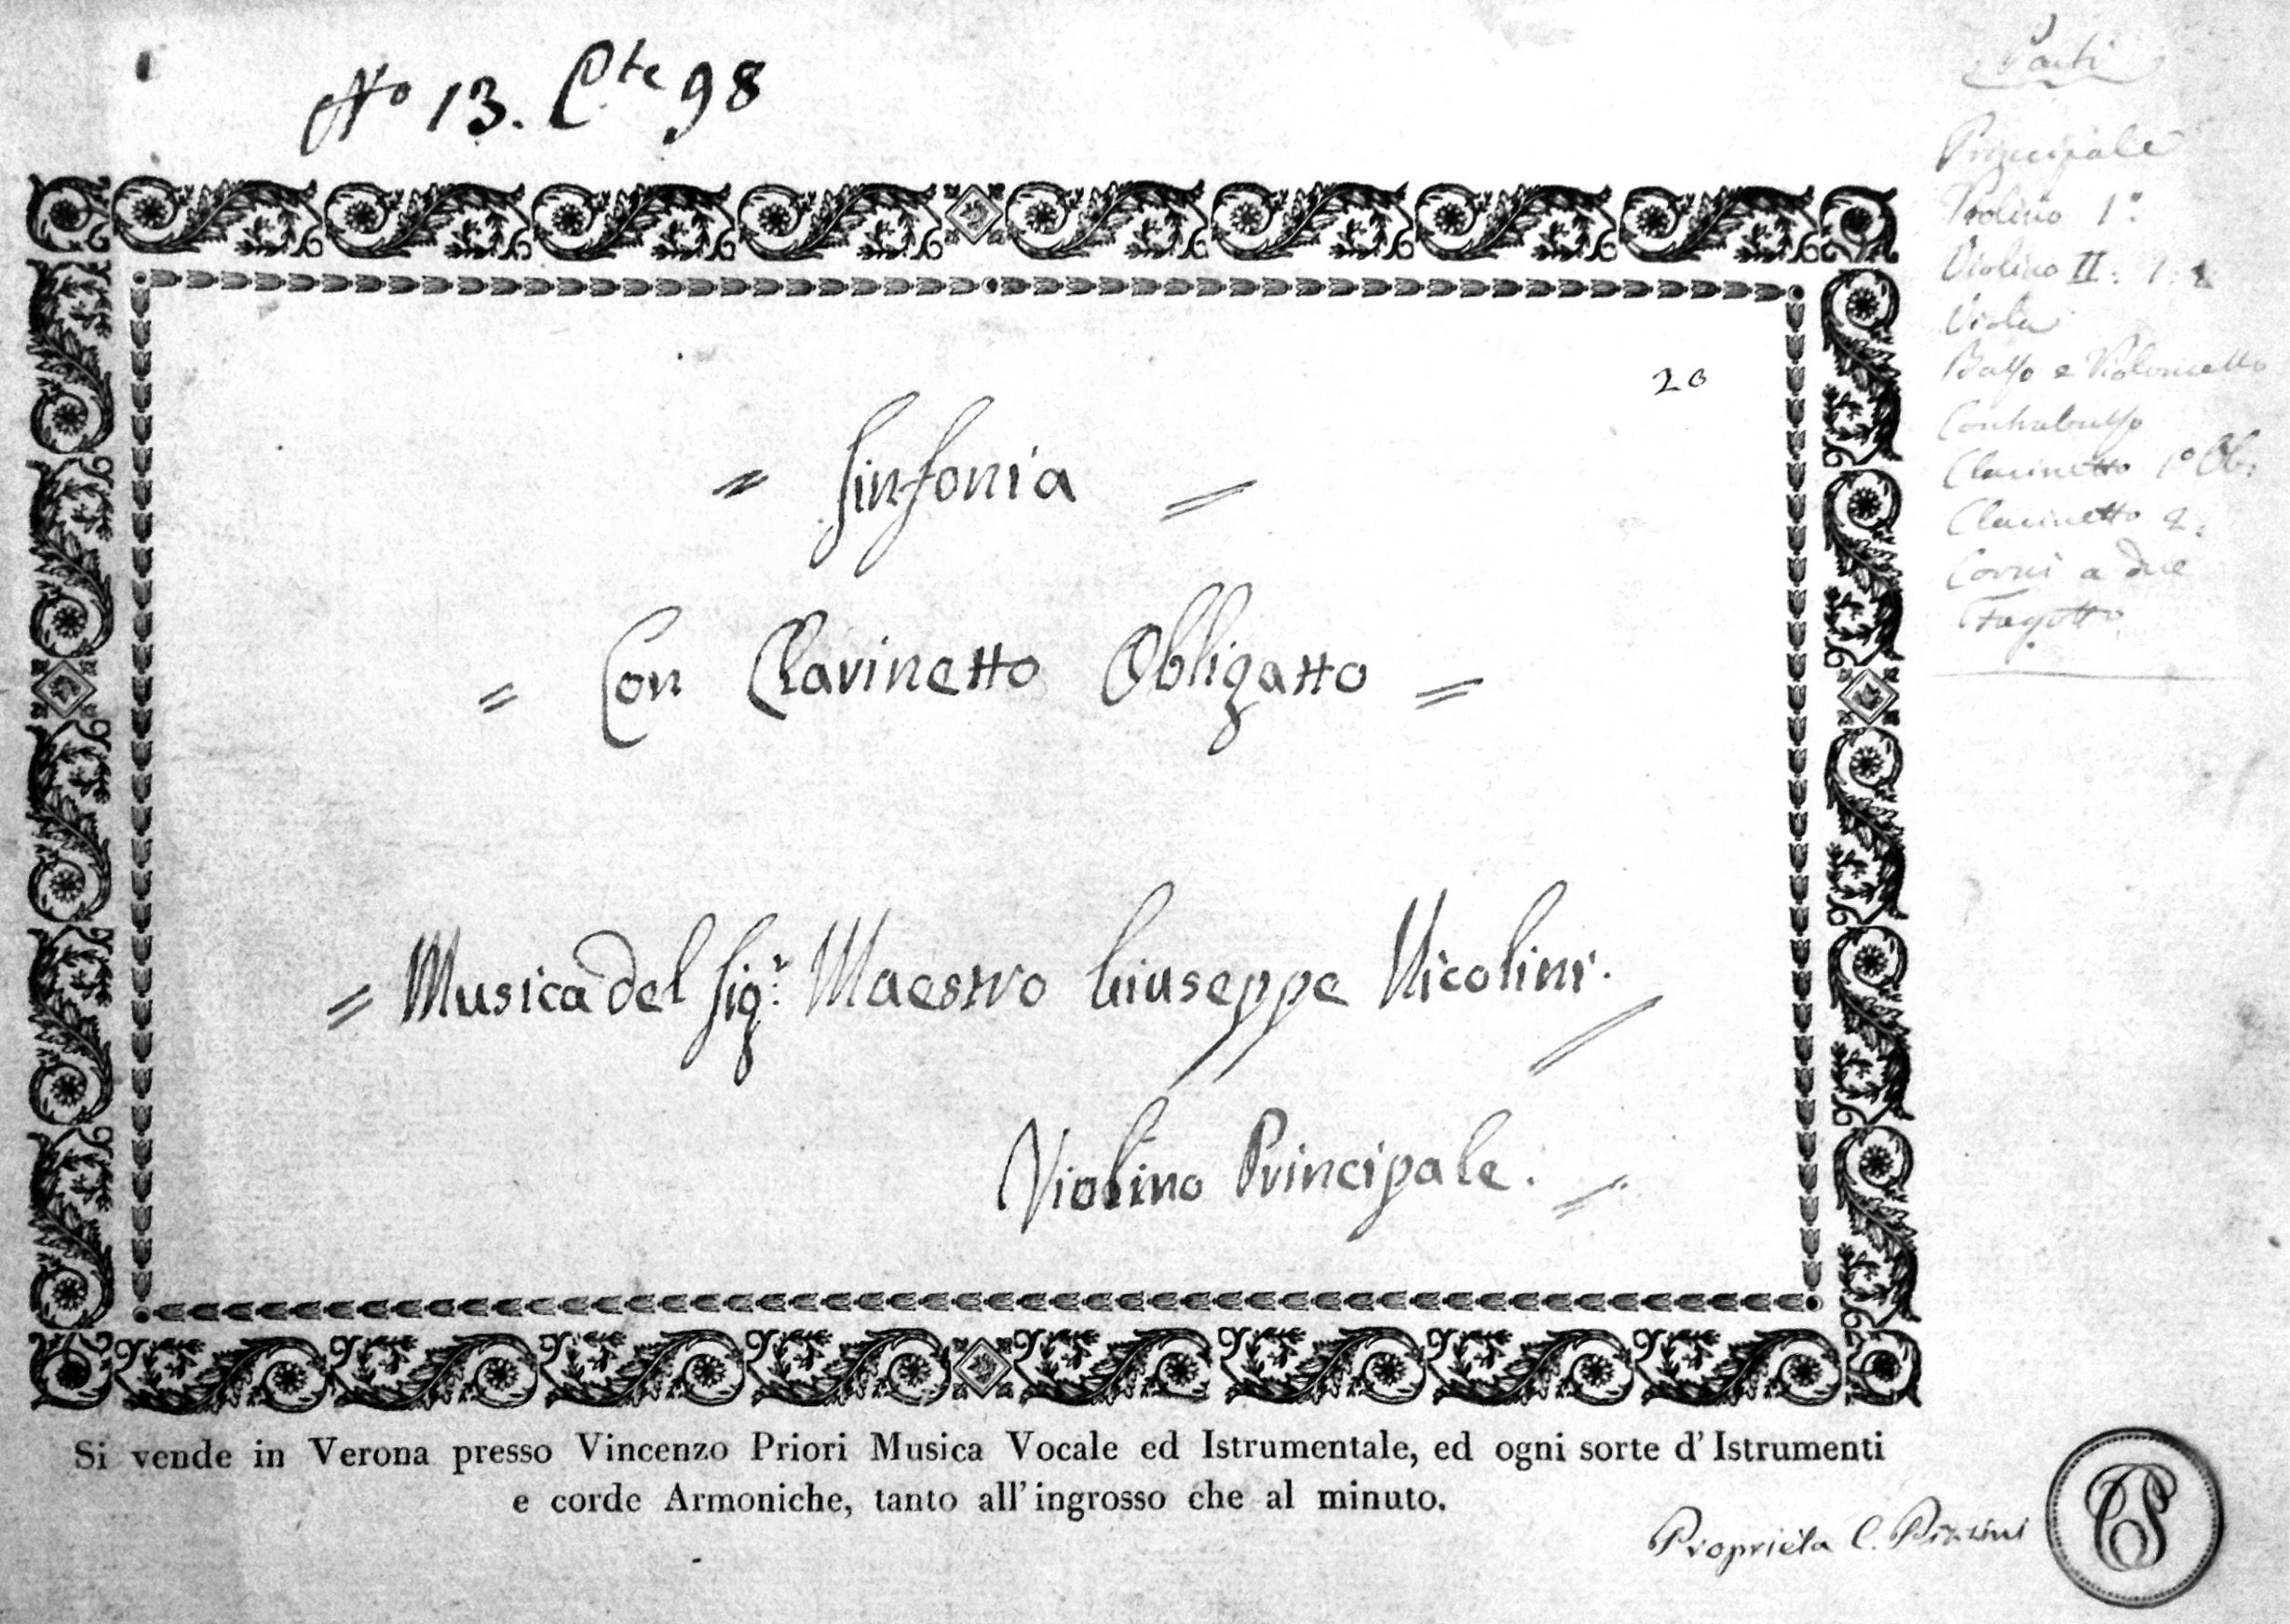 No 13. Cte 98
20
= Sinfonia =
= Con Clarinetto Obligatto =
= Musica del Sigr: Maestro Giuseppe Nicolini. =
Violino Principale. =
Si vende in Verona presso Vincenzo Priori Musica Vocale ed Istrumentale, ed ogni sorte d'Istrumenti
e corde Armoniche, tanto all'ingrosso che al minuto.
Proprietà C. Pizzini
Parti
Principale
Violino 1º
Violino II:
Viola
Basso e Violoncello
Contrabasso
Clarinetto 1º Ob:
Clarinetto 2:
Corni a due
Fagotto